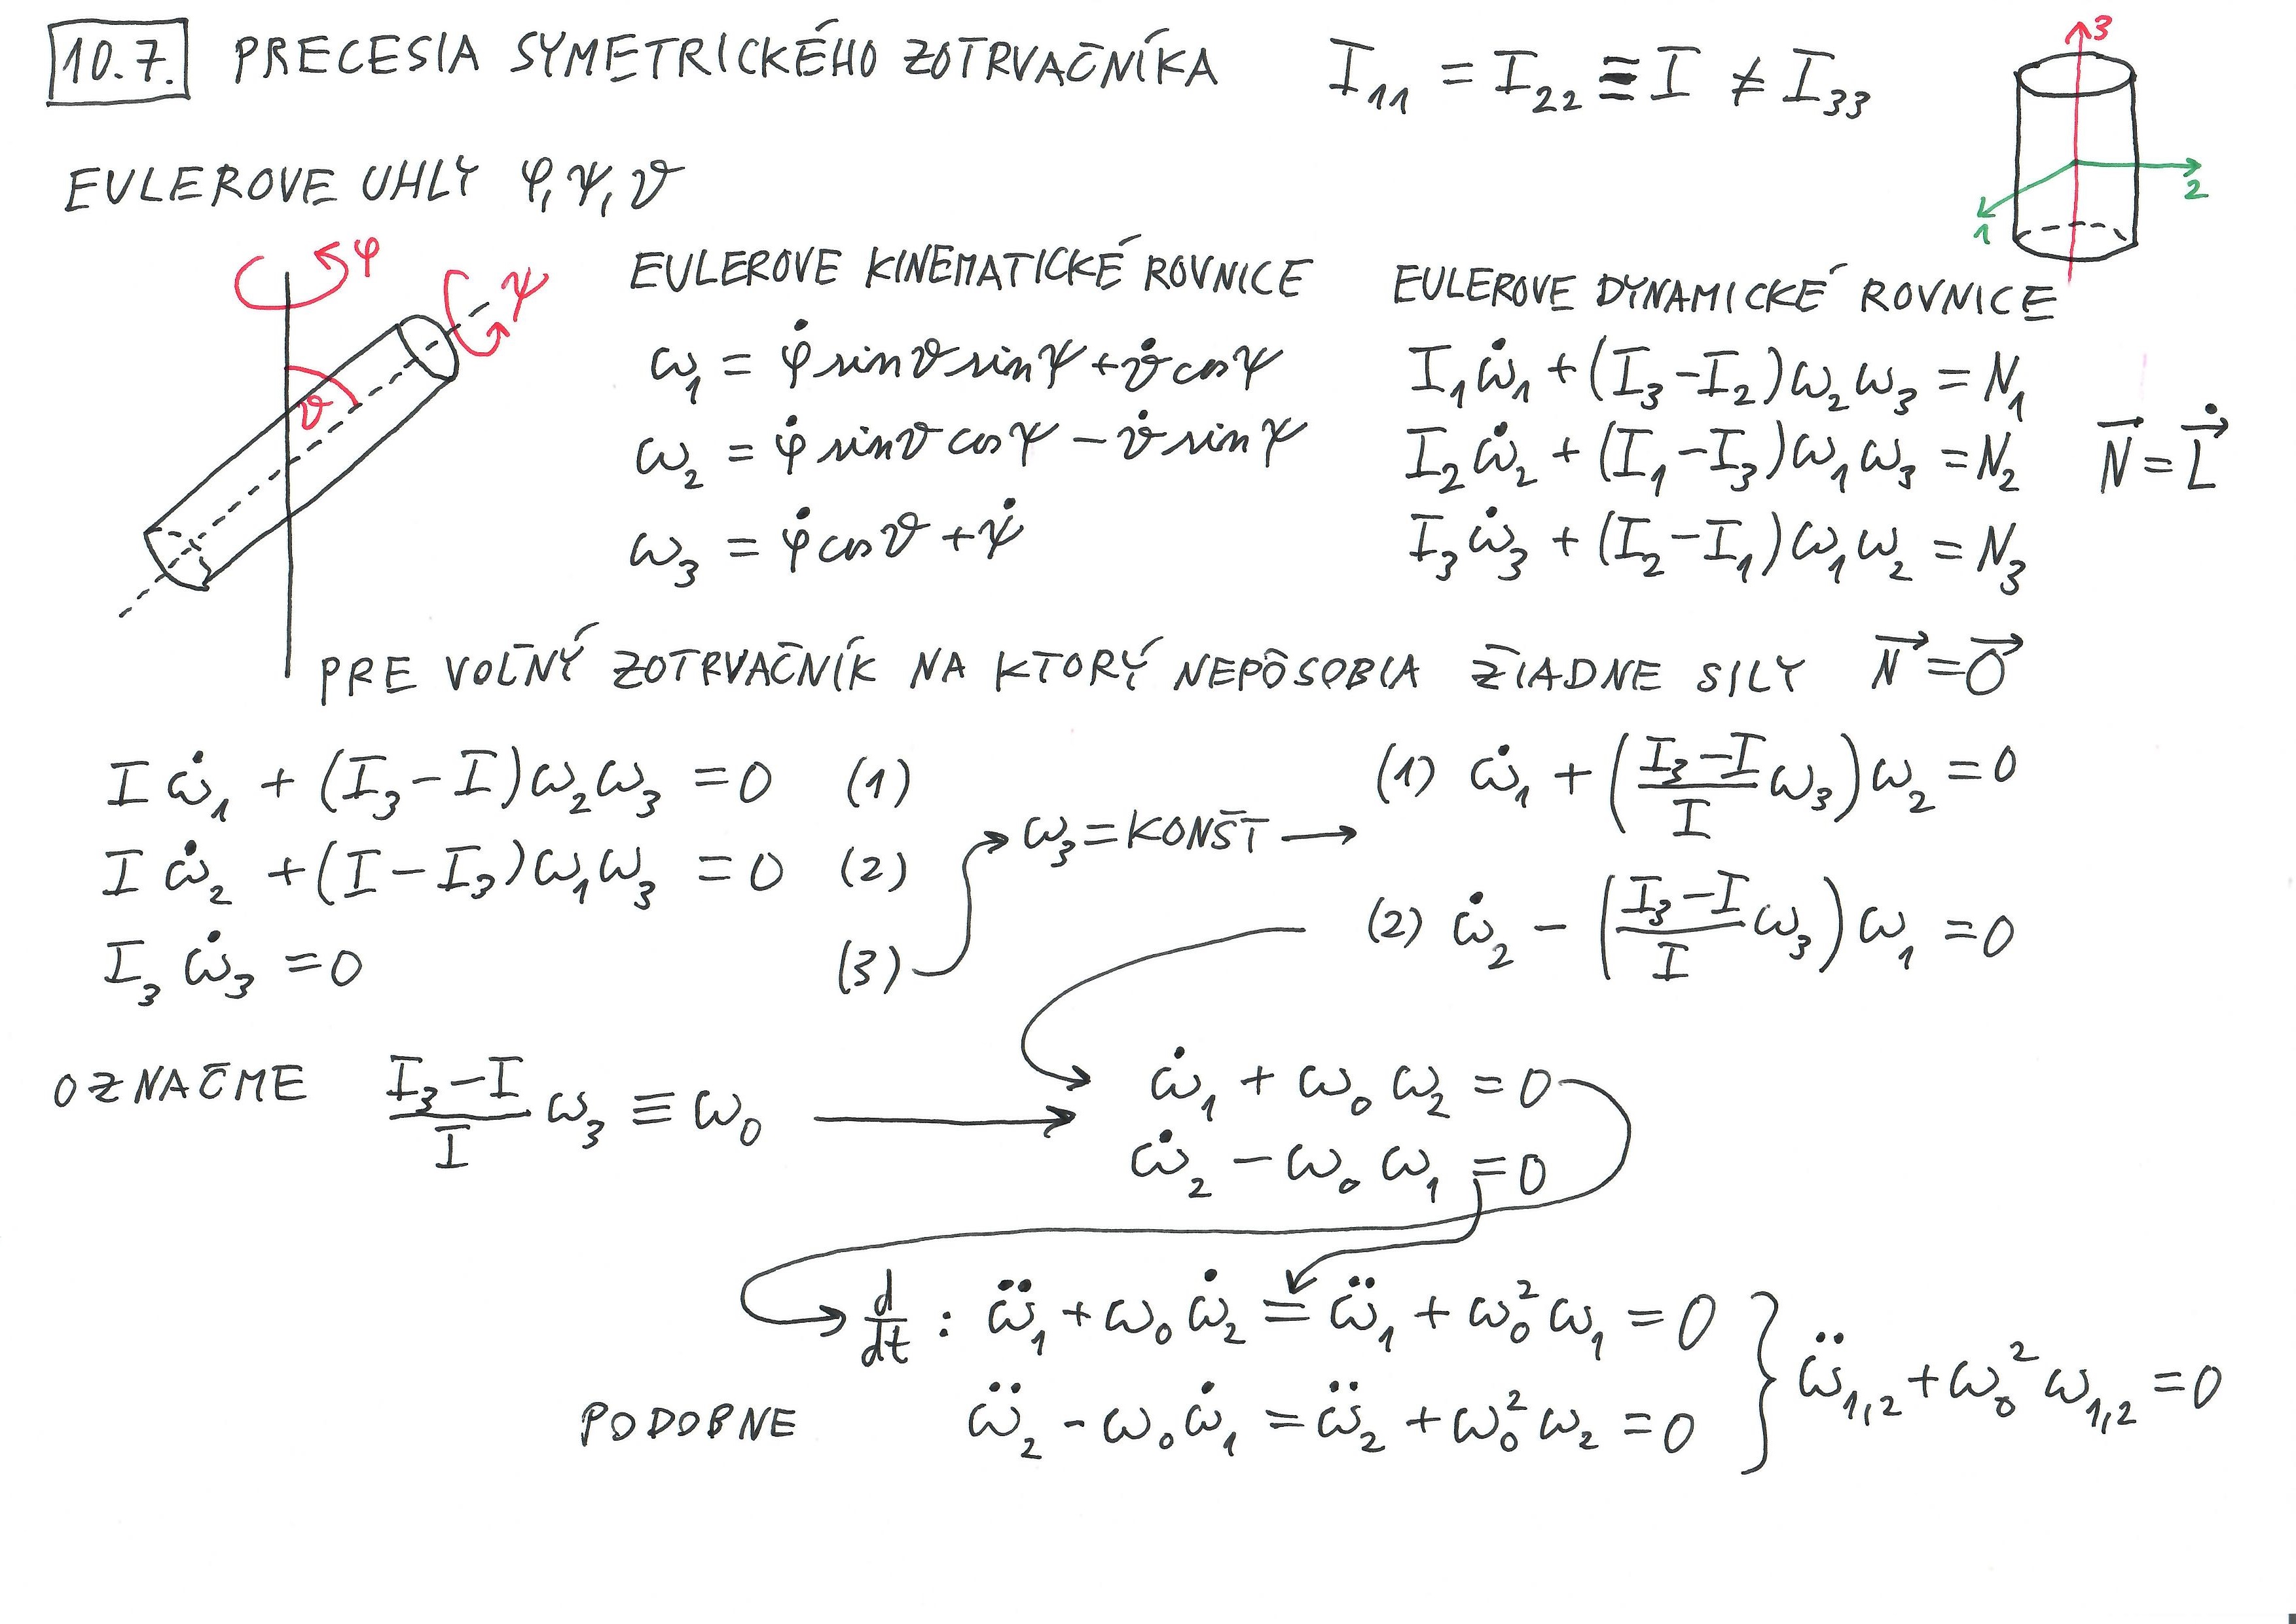 10.7. PRECESIA SYMETRICKÉHO ZOTRVAČNÍKA I₁₁ = I₂₂ ≡ I ≠ I₃₃
3
2
1
EULEROVE UHLY φ, ψ, ϑ
φ
ψ
ϑ
EULEROVE KINEMATICKÉ ROVNICE
ω₁ = φ̇ sinϑ sinψ + ϑ̇ cosψ
ω₂ = φ̇ sinϑ cosψ − ϑ̇ sinψ
ω₃ = φ̇ cosϑ + ψ̇
EULEROVE DYNAMICKÉ ROVNICE
I₁ω̇₁ + (I₃−I₂)ω₂ω₃ = N₁
I₂ω̇₂ + (I₁−I₃)ω₁ω₃ = N₂
I₃ω̇₃ + (I₂−I₁)ω₁ω₂ = N₃
N⃗ = L⃗̇
PRE VOĽNÝ ZOTRVAČNÍK NA KTORÝ NEPÔSOBIA ŽIADNE SILY N⃗ = 0⃗
Iω̇₁ + (I₃−I)ω₂ω₃ = 0 (1)
Iω̇₂ + (I−I₃)ω₁ω₃ = 0 (2)
I₃ω̇₃ = 0 (3)
ω₃ = KONŠT →
(1) ω̇₁ + ((I₃−I)/I ω₃)ω₂ = 0
(2) ω̇₂ − ((I₃−I)/I ω₃)ω₁ = 0
OZNAČME (I₃−I)/I ω₃ ≡ ω₀ →
ω̇₁ + ω₀ω₂ = 0
ω̇₂ − ω₀ω₁ = 0
d/dt : ω̈₁ + ω₀ω̇₂ = ω̈₁ + ω₀²ω₁ = 0
PODOBNE ω̈₂ − ω₀ω̇₁ = ω̈₂ + ω₀²ω₂ = 0
} ω̈₁,₂ + ω₀²ω₁,₂ = 0